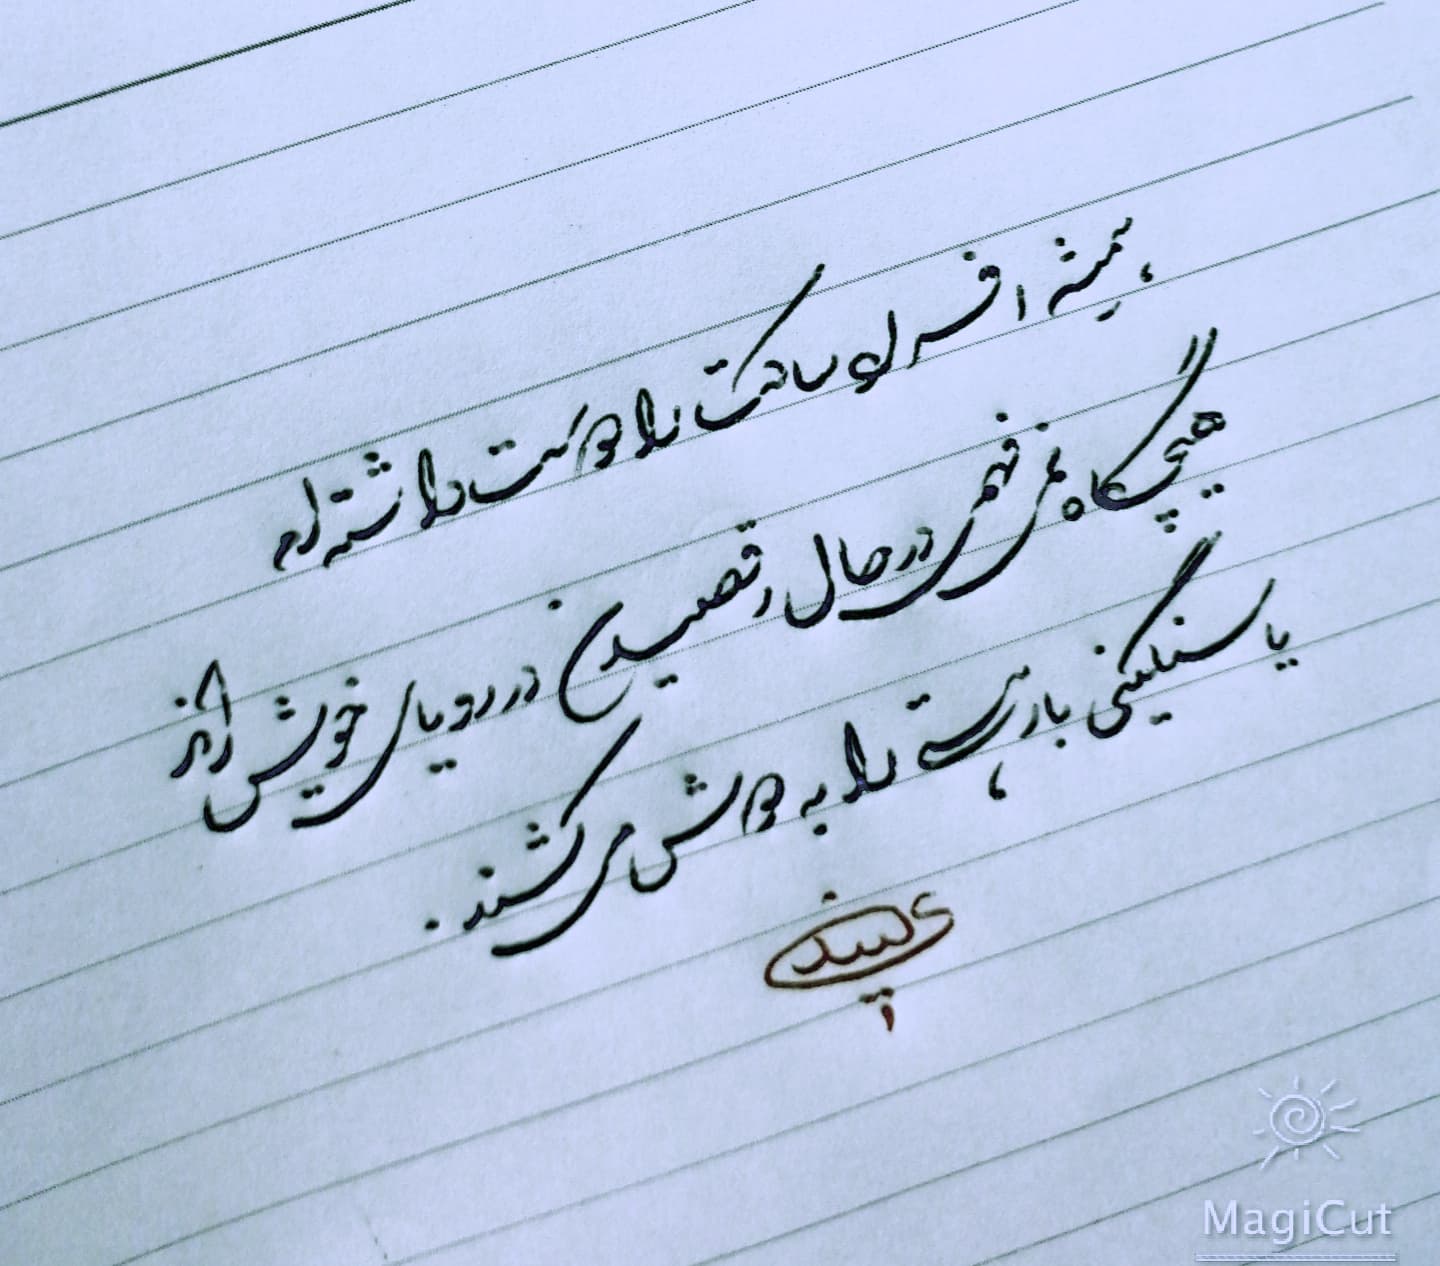 همیشه افراد ساکت را دوست داشته ام
هیچگاه نمی فهمی در حال رقصیدن در رویای خویش اند
یا سنگینی بار هستی را به دوش می کشند.
MagiCut